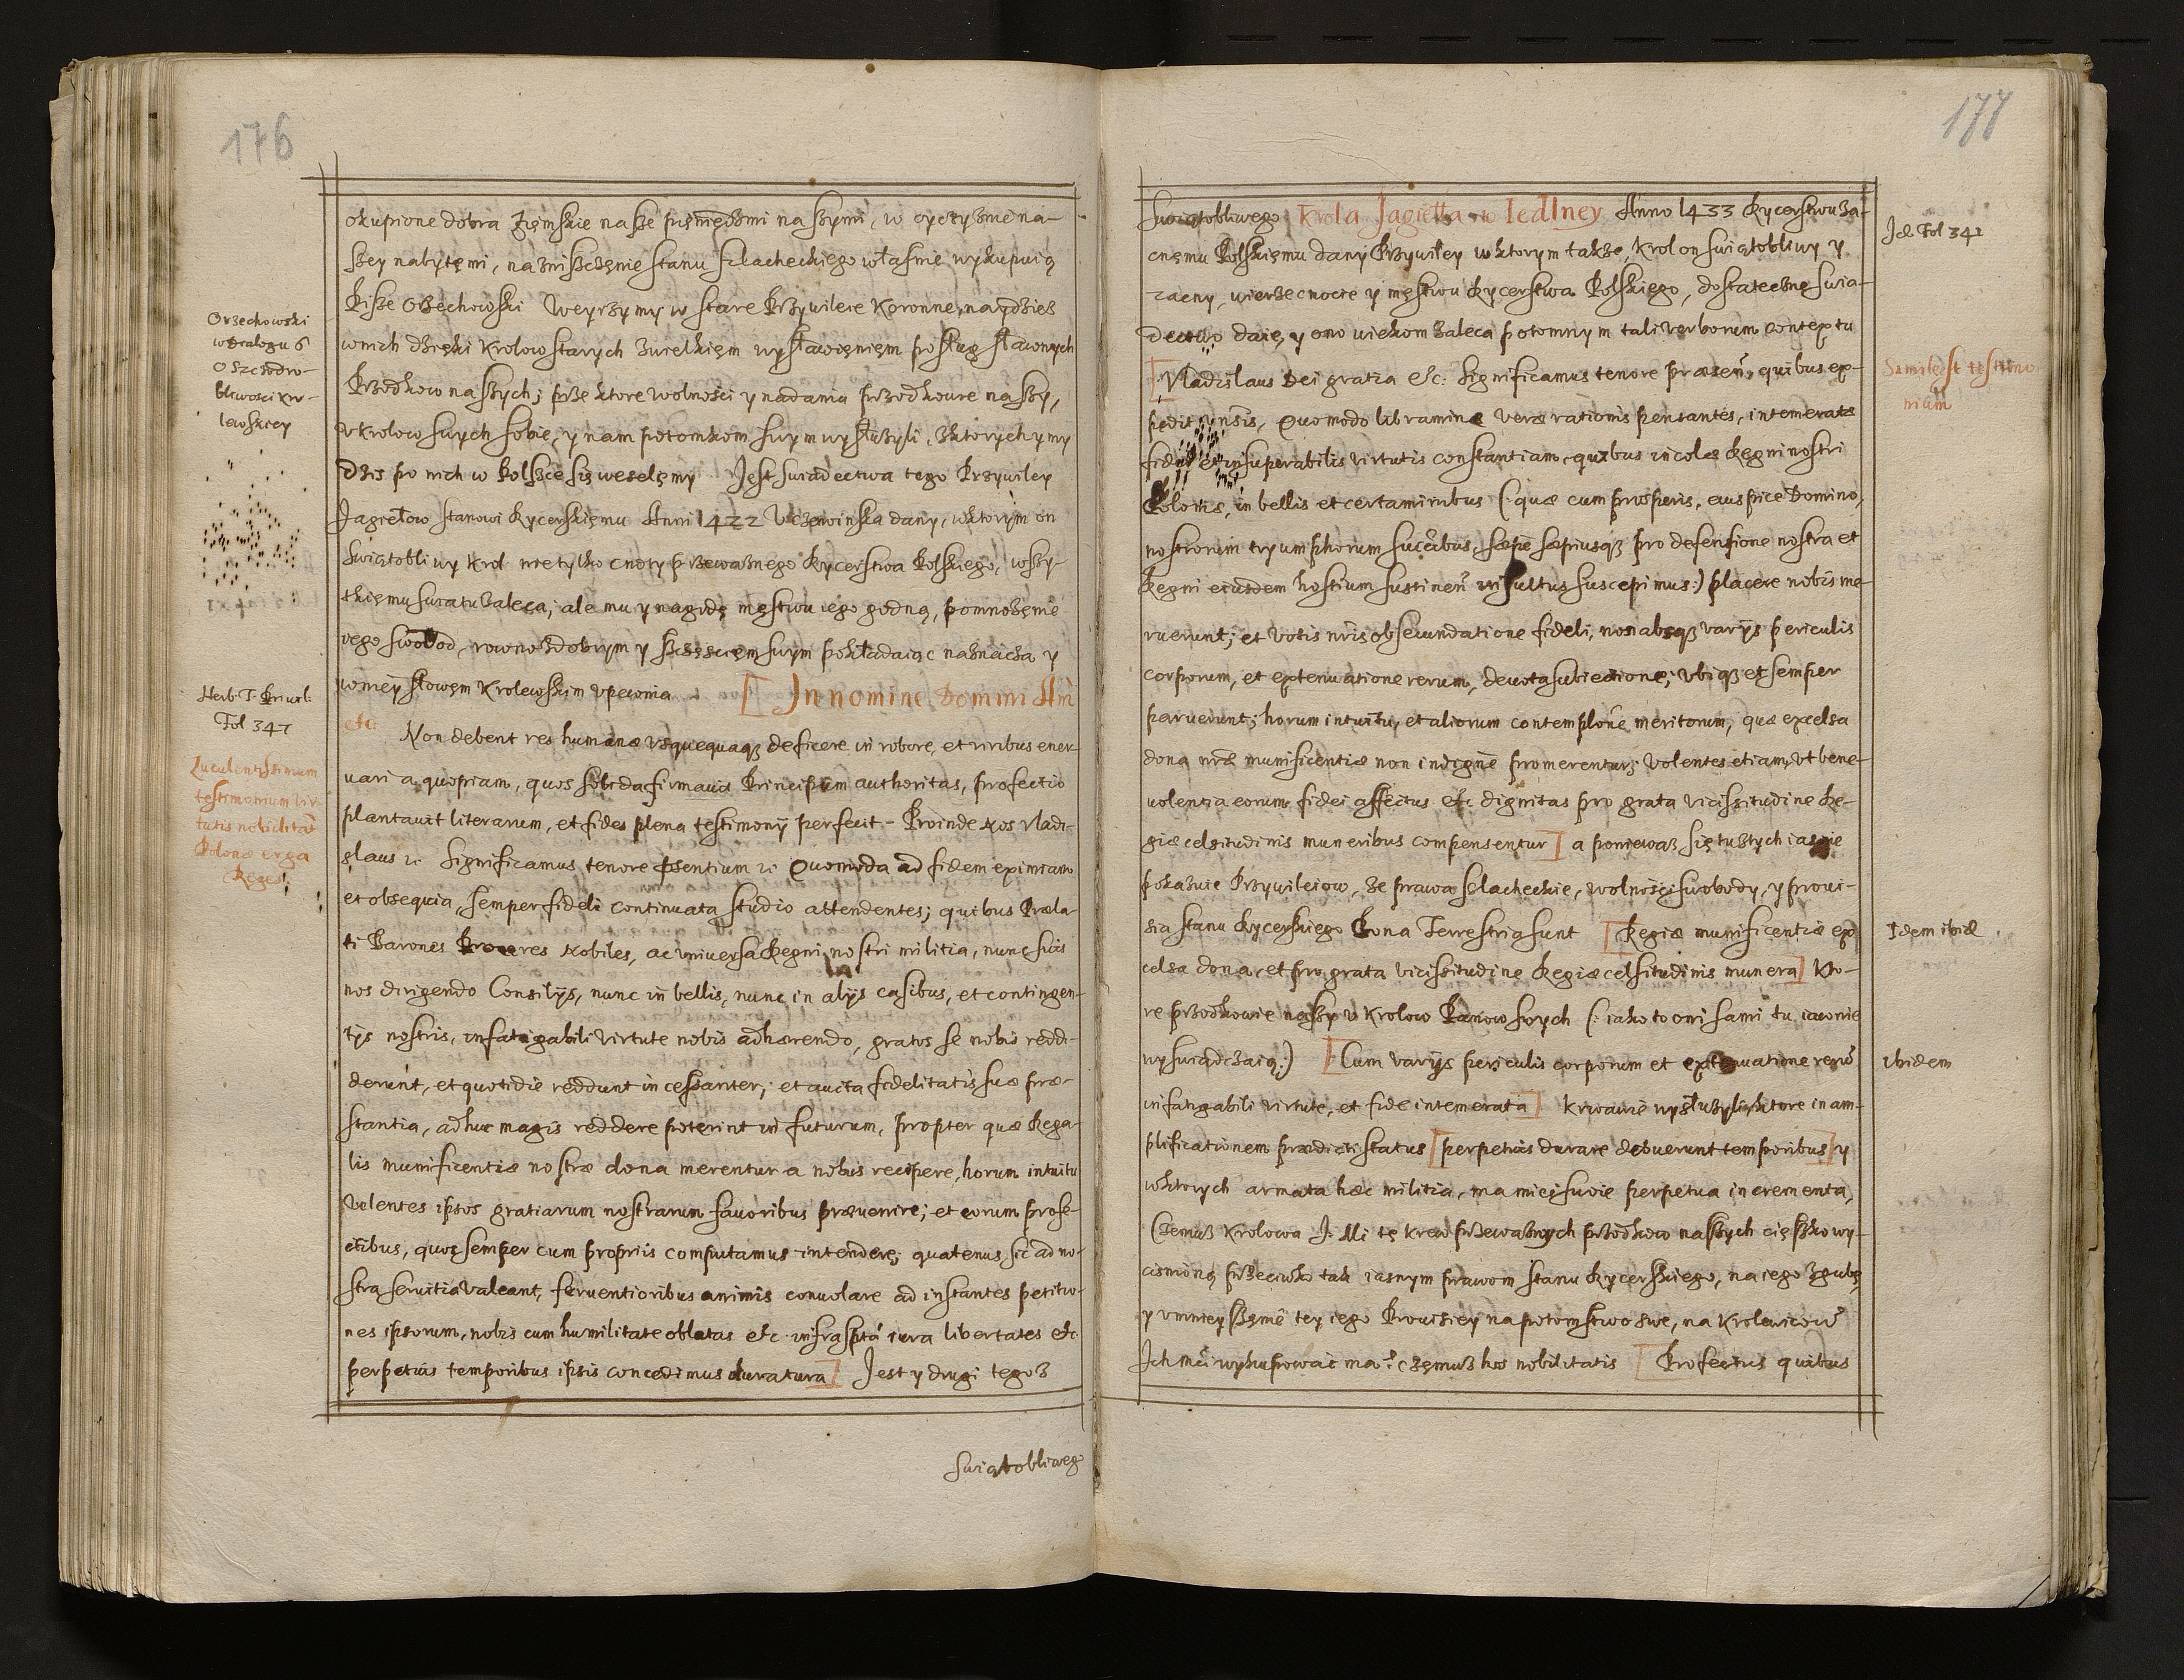 176
okupione dobra Zięmskie nasze pięniędzmi naszymi, w oyczyznie na-
szey nabytęmi, na zniszczęnie stanu szlacheckiego własnie wykupuią
Pisze Orzechowski Weyrzymy w stare Przywileie Koronne, naydziesz
w nich dzięki Krolow starych z wielkięm wysławięnięm posług sławnych
Przodkow naszych; prze ktore wolności y nadania przodkowie naszy,
v Krolow swych sobie, y nam potomkom swym wysłużyli, z ktorych y my
dzis po nich w Polszce się weselęmy. Jest swiadectwa tego Przywiley
Jagiełow stanowi Rycerskięmu Anni 1422 v Czerwinska dany, w ktorym on
Swiątobliwy Krol nie tylko cnoty przeważnego Rycerstwa Polskiego, wszy-
tkięmu swiatu zaleca; ale mu y nagrodę męstwu iego godną, pomnożęnie
iego swobod, rowno z dobrym y szczęscięm swym pokładaiąc naznacza y
w niey słowęm Krolewskim vpewnia [ In nomine Domini Am̃
etc: Non debent res humanæ vsquequaqꝫ deficere in robore, et viribus ener-
uari a quopiam, quos solida firmauit Principum authoritas, profectio
plantauit literarum, et fides plena testimonÿ perfecit. Proinde Nos Vladi-
slaus etc Significamus tenore p̄sentium etc Quomodo ad fidem eximiam
et obsequia, semper fideli continuata studio attendentes; quibus Præla-
ti Barones Proceres Nobiles, ac vniuersa Regni nostri militia, nunc suis
nos dirigendo Consilÿs, nunc in bellis, nunc in alÿs casibus, et contingen-
tÿs nostris, infatigabili virtute nobis adhærendo, gratos se nobis reddi-
derunt, et quotidie reddunt incessanter; et aucta fidelitatis suæ præ-
stantia, adhuc magis reddere poterint in futurum, propter quæ Rega-
lis munificentiæ nostræ dona merentur a nobis recipere, horum intuitu
Volentes ipsos gratiarum nostrarum fauoribus præuenire; et eorum profe-
ctibus, quos semper cum propriis computamus intendere; quatenus sic ad no-
stra seruitia valeant, feruentioribus animis conuolare ad instantes petitio-
nes ipsorum, nobis cum humilitate oblatas etc. infrasptã iura libertates etc
perpetuis temporibus ipsis concedimus duratura] Jest y drugi tegoż
Swiątobliwego
Orzechowski
w Dialogu 6
o szczodro-
bliwosci kro-
lewskiey
Herb: J. Priuil:
Fol 341
Luculentissimum
testimonium vir-
tutis nobilitat̃
Polonæ erga
Reges
177
Swiątobliwego Krola Jagiełła w Iedlney Anno 1433 Rycerstwu za-
cnęmu Polskięmu dany Przywiley w ktorym także, Krol on swiątobliwy y
zacny, wierze cnocie y męstwu Rycerstwa Polskiego, dostateczne swia-
dectwo daie, y ono wiekom zaleca potomnym tali verborum contextu
[ Vladislaus Dei gratia etc: Significamus tenore præsen̄, quibus ex-
pedit vnīsis, Quomodo libramine veræ rationis pensantes, intemeratæ
fidei et insuperabilis virtutis constantiam, quibus incolæ Regni nostri
Poloniæ, in bellis et certaminibus (: quæ cum prosperis, auspice Domino,
nostrorum tryumphorum succ̃ibus, sæpe sæpiusqꝫ pro defensione nostra et
Regni eiusdem hostium sustinen̄ insultus suscepimus:) placere nobis me-
ruerunt; et votis nr̃is obsecundatione fideli, non absqꝫ varÿs periculis
corporum, et extenuatione rerum, deuota subiectione; vbiqꝫ et semper
paruerunt; horum intuitu, et aliorum contemplõne meritorum, quæ excelsa
dona nr̃æ munificentiæ non indigne promerentur; Volentes etiam, vt bene-
uolentia eorum fidei affectus etc. dignitas pro grata vicissitudine Re-
giæ celsitudinis muneribus compensentur ] a poniewasz się tu z tych iasnie
pokazuie Przywileiow, że prawa Szlacheckie, wolności swobody, y proui-
sia stanu Rycerskiego Bona Terrestria sunt [ Regiæ munificentiæ ex-
celsa dona, et pro grata vicissitudine Regiæ celsitudinis munera] Kto-
re przodkowie naszy v Krolow Panow swych (: iako to oni sami tu iawnie
wyswiadczaią:) [ Cum varÿs periculis corporum et extenuatione rerũ
infatigabili virtute, et fide intemerata ] krwawie wysłużyli, ktore in am-
plificationem prædicti status [ perpetuis durare debuerunt temporibus ] y
w ktorych armata hæc militia, ma mieć swoie perpetua incrementa,
Czemuż Krolowa J. Mć tę krew przeważnych przodkow naszych cięszko wy-
cisnioną przeciwko tak iasnym prawom stanu Rycerskiego, na iego zgubę
y vmnieyszęnie tey iego Prouisiey na potomstwo swe, na Krolewicow̃
Ich Mci wykupować ma? Częmuż hos nobilitatis [ Profectus quibus
Id. Fol 341
Simile est testimo-
nium
Idem ibid
Ibidem